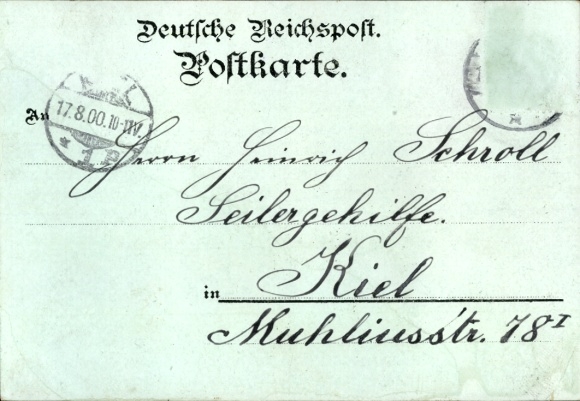 Deutsche Reichspost.
Postkarte.
17.8.00.10-11V.
* 1P
An
Herrn Heinrich Schroll
Seilergehilfe.
in Kiel
Muhliusstr. 78 I